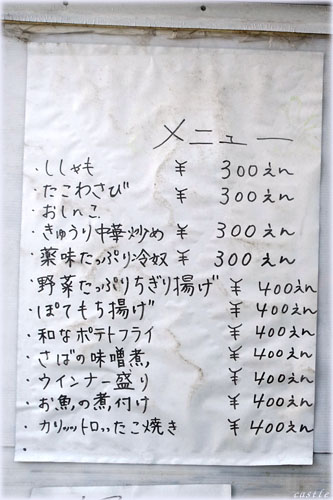 メニュー
・ししゃも ￥ 300えん
・たこわさび ￥ 300えん
・おしんこ
・きゅうり中華炒め ￥ 300えん
・薬味たっぷり冷奴 ￥ 300えん
・野菜たっぷりちぎり揚げ ￥ 400えん
・ぽてもち揚げ ￥ 400えん
・和なポテトフライ ￥ 400えん
・さばの味噌煮 ￥ 400えん
・ウインナー盛り ￥ 400えん
・お魚の煮付け ￥ 400えん
・カリットロッたこ焼き ￥ 400えん
・
castle